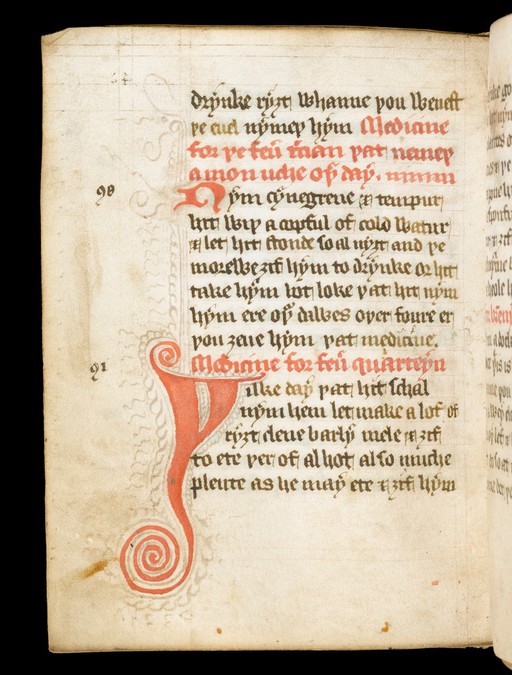 drynke ryzt whanne you weneſt
ye euel nymey hym Medicine
for ye feu man yat nemey
a mon uche oy day.
90
Nym cynegreue & tempur
hit wiy a copful of cold watur
& let hit stonde so al nyzt and ye
morewe zif hym to drynke or hit
take hym bot loke yat hit nym
hym ere oy dawes oyer foure er
you zeue hym yat medicine.
91
Medicine for feu quarteyn
Yilke day yat hit schal
nym hem let make a lof of
ryzt clene barly mele & zif
to ete yer of al hot also muche
plente as he may ete & zif hym